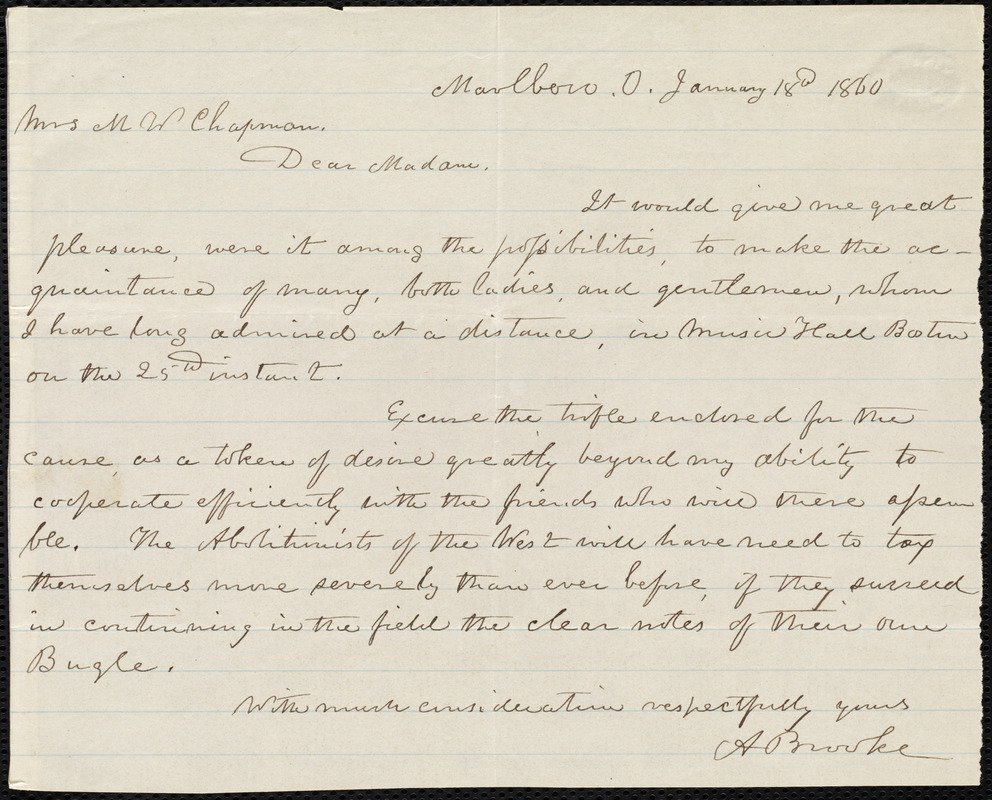 Marlboro. O. January 18th 1860
Mrs M W Chapman.
Dear Madam.
It would give me great
pleasure, were it among the possibilities, to make the ac-
quaintance of many, both ladies, and gentlemen, whom
I have long admired at a distance, in Music Hall Boston
on the 25th instant.
Excuse the trifle enclosed for the
cause, as a token of desire greatly beyond my ability to
cooperate efficiently with the friends who will there assem
ble. The Abolitionists of the West will have need to tax
themselves more severely than ever before, if they succeed
in continuing in the field the clear notes of their own
Bugle.
With much consideration respectfully yours
A Brooke